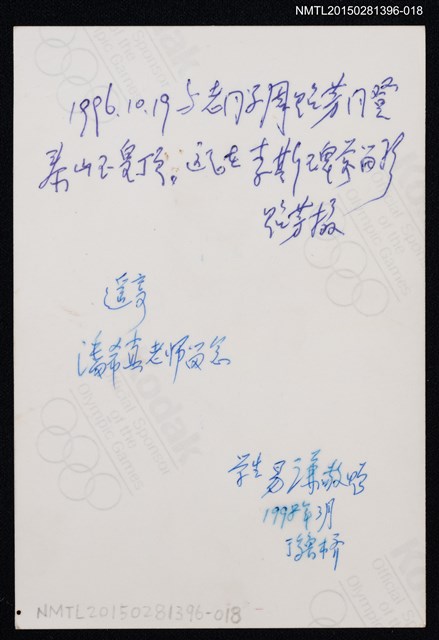 NMTL20150281396-018
1996.10.19与老同学周贻芳同登
泰山玉皇顶。这是在李斯碑旁留影
贻芳摄
遥寄
潘希真老师留念
学生易谦敬赠
1997年3月
Kodak
Official Sponsor
of the
Olympic Games
NMTL20150281396-018